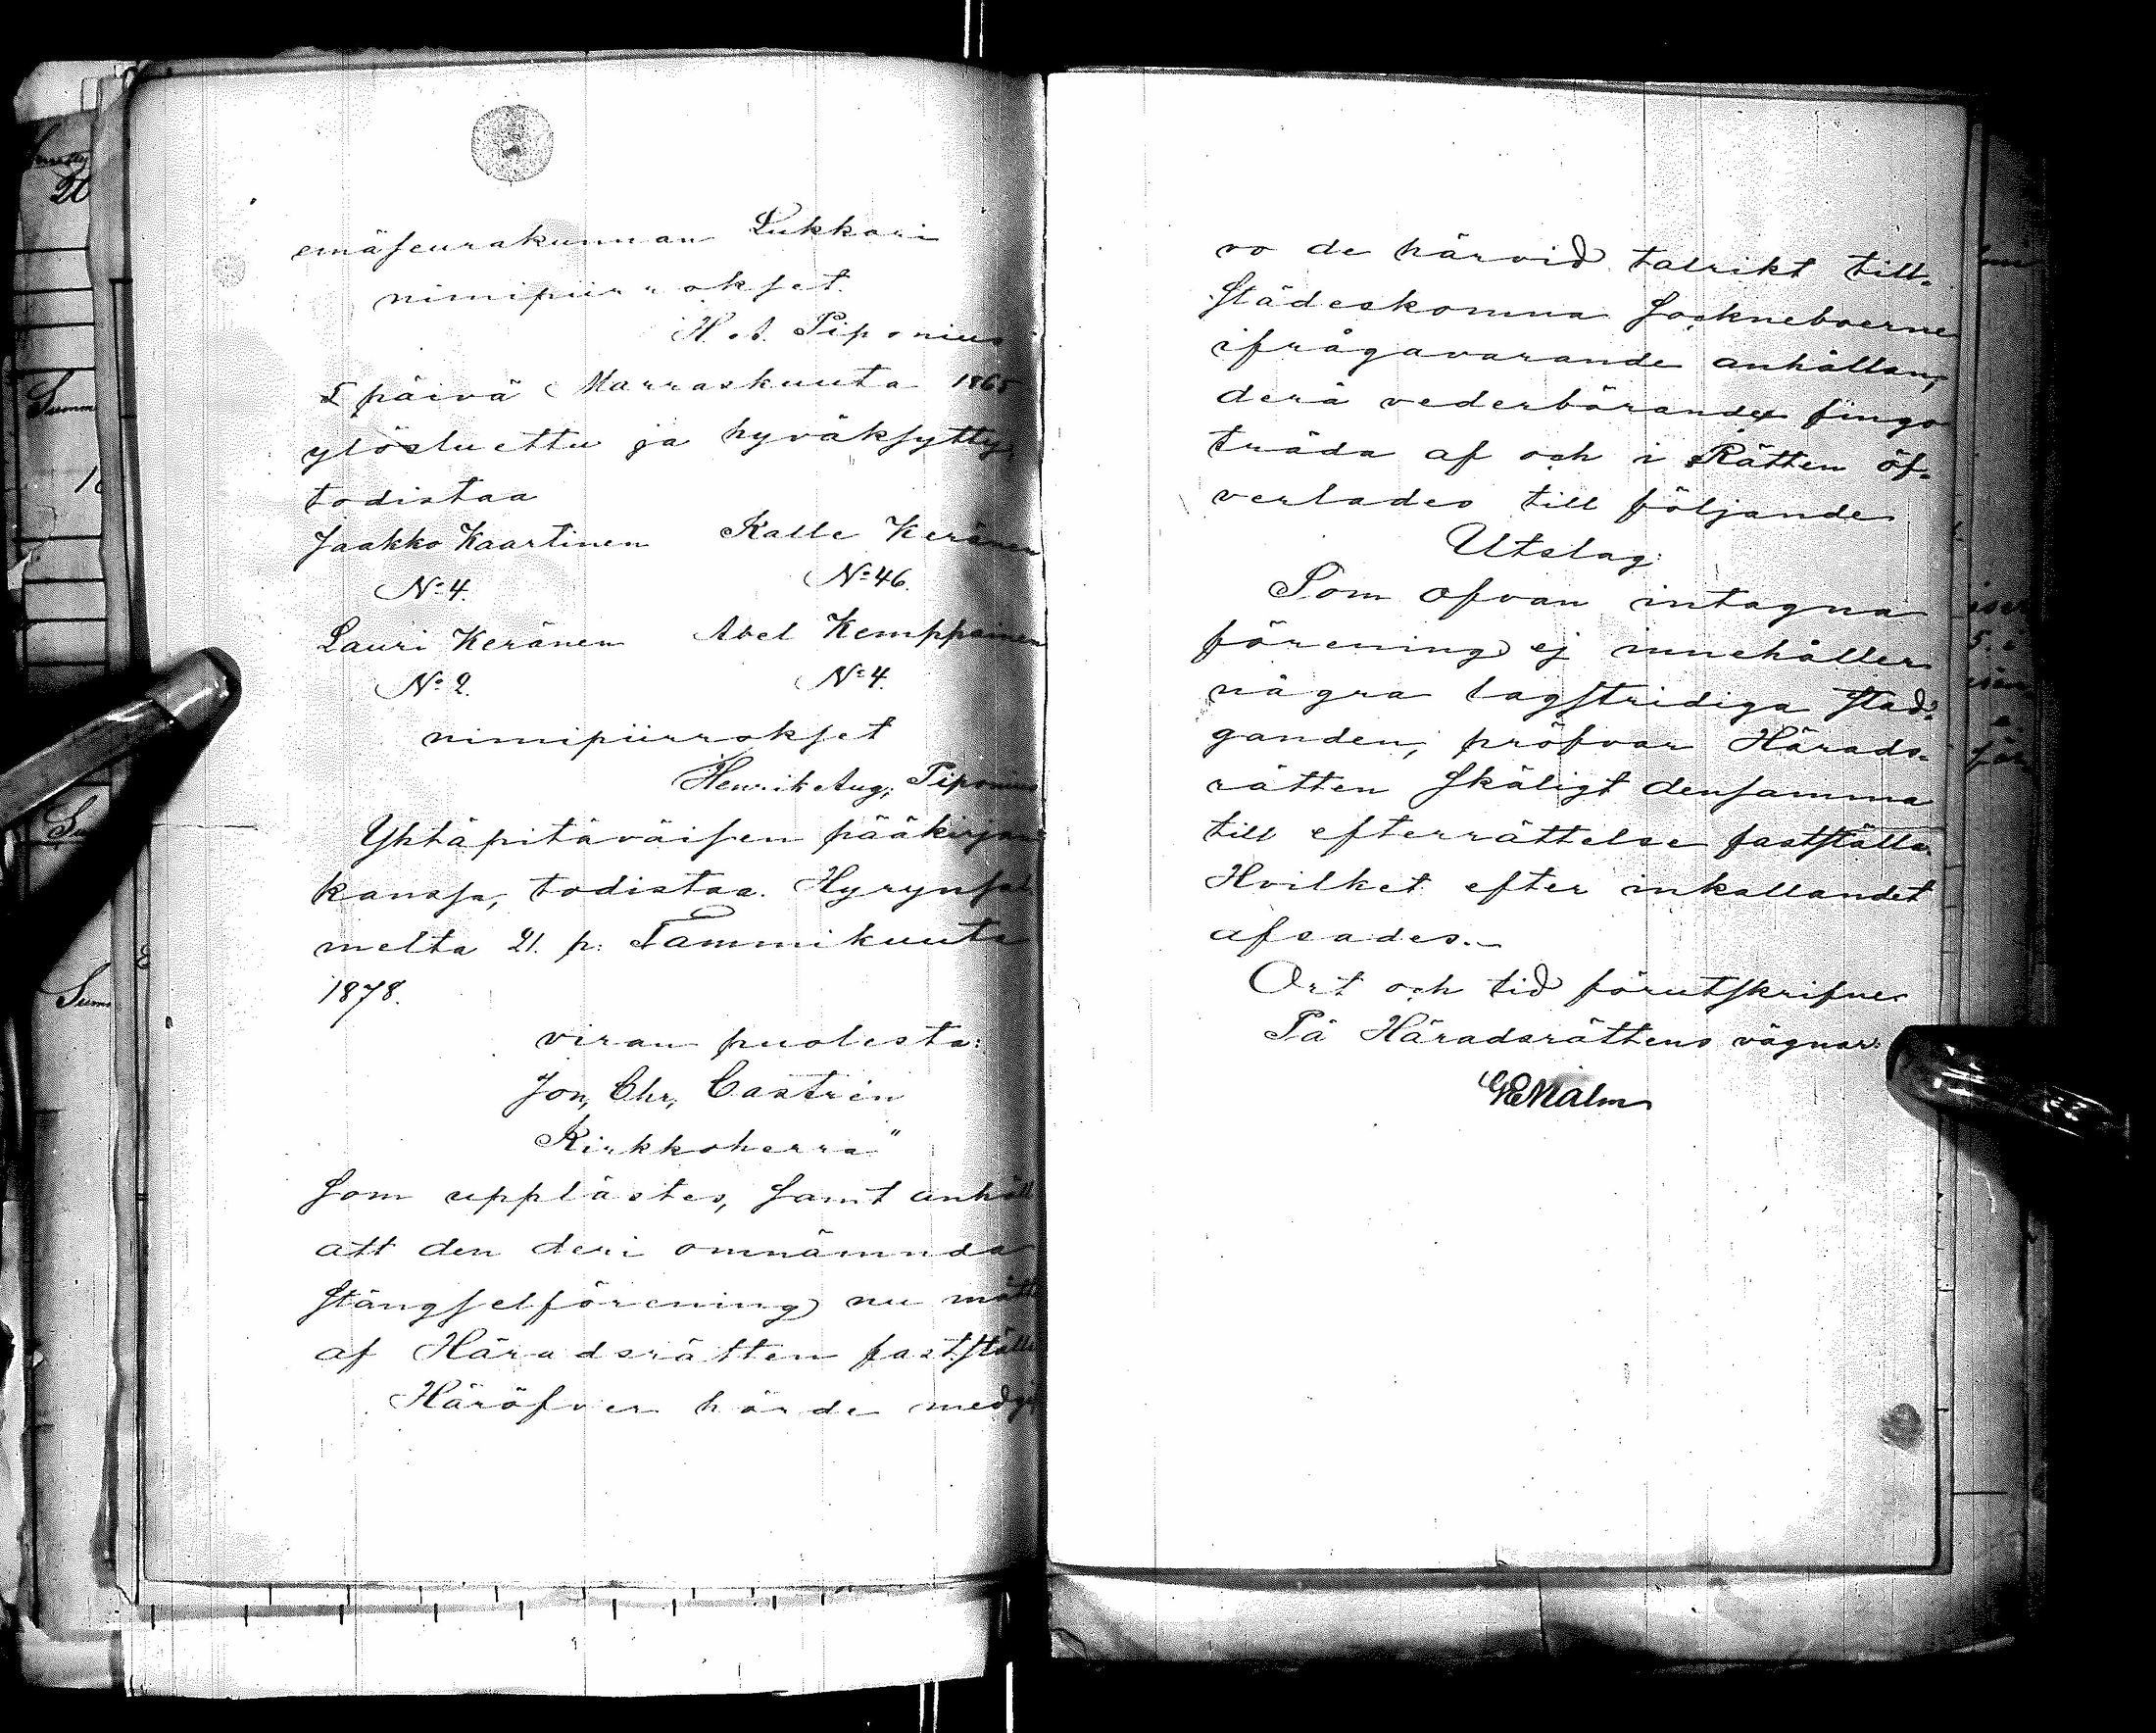 emäseurakunnan Lukkari
nimipiirrokset.
H. A. Piponius
5 päivä Marraskuuta 1865
ylösluettu ja hyväksytty,
todistaa
Jaakko Kaartinen Kalle Keränen
No 4. No 46.
Lauri Keränen Abel Kemppainen
No 2. No 4.
nimipiirrokset
Henrik Aug; Piponius
Yhtäpitäväisen pääkirjan
kanssa, todistaa. Hyrynsal
melta 21. p: Tammikuuta
1878.
viran puolesta:
Jon, Chr, Castrén
Kirkkoherra"
som upplästes, samt anhöll
att den deri omnämnda
stängselförening nu måtte
af Häradsrätten fastställa
Häröfver hörde medgåf
vo de härvid talrikt till-
städeskomna Sockneboerne
ifrågavarande anhållan,
derå vederbörande fingo
träda af och i Rätten öf-
verlades till följande
Utslag:
Som ofvan intagna
förening ej innehåller
några lagstridiga stad-
ganden, pröfvar Härads-
rätten skäligt densamma
till efterrättelse fastställa.
Hvilket efter inkallandet
afsades.
Ort och tid förutskrifne
På Häradsrättens vägnar:
GEMalm